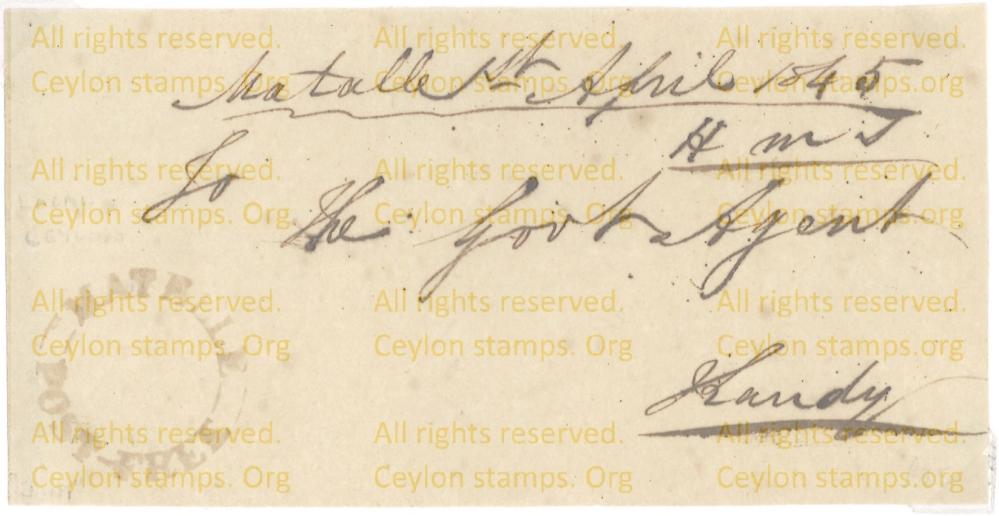 All rights reserved. All rights reserved. All rights reserved.
Ceylon stamps. Org Ceylon stamps. Org Ceylon stamps.org
Matalle 1st April 1845
H m S
To
All rights reserved. All rights reserved. All rights reserved.
Ceylon stamps. Org Ceylon stamps. Org Ceylon stamps.org
The Govt Agent
MATELLE
POST FREE
All rights reserved. All rights reserved. All rights reserved.
Ceylon stamps. Org Ceylon stamps. Org Ceylon stamps.org
Kandy
All rights reserved. All rights reserved. All rights reserved.
Ceylon stamps. Org Ceylon stamps. Org Ceylon stamps.org